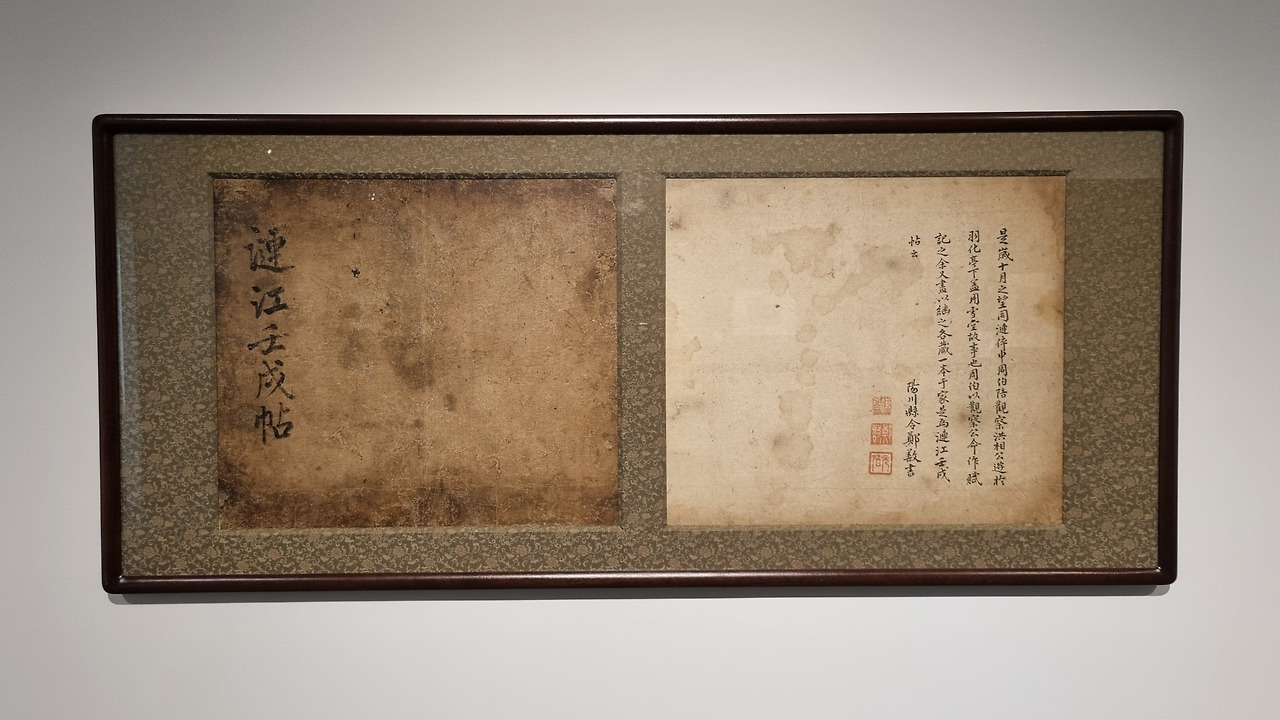 漣江壬戌帖
是歲十月之望同漣倅申周伯陪觀察洪相公遊於
羽化亭下盖用雪堂故事也周伯以觀察公命作賦
記之余又畫以繼之各藏一本于家是為漣江壬戌
帖云
陽川縣令鄭敾書